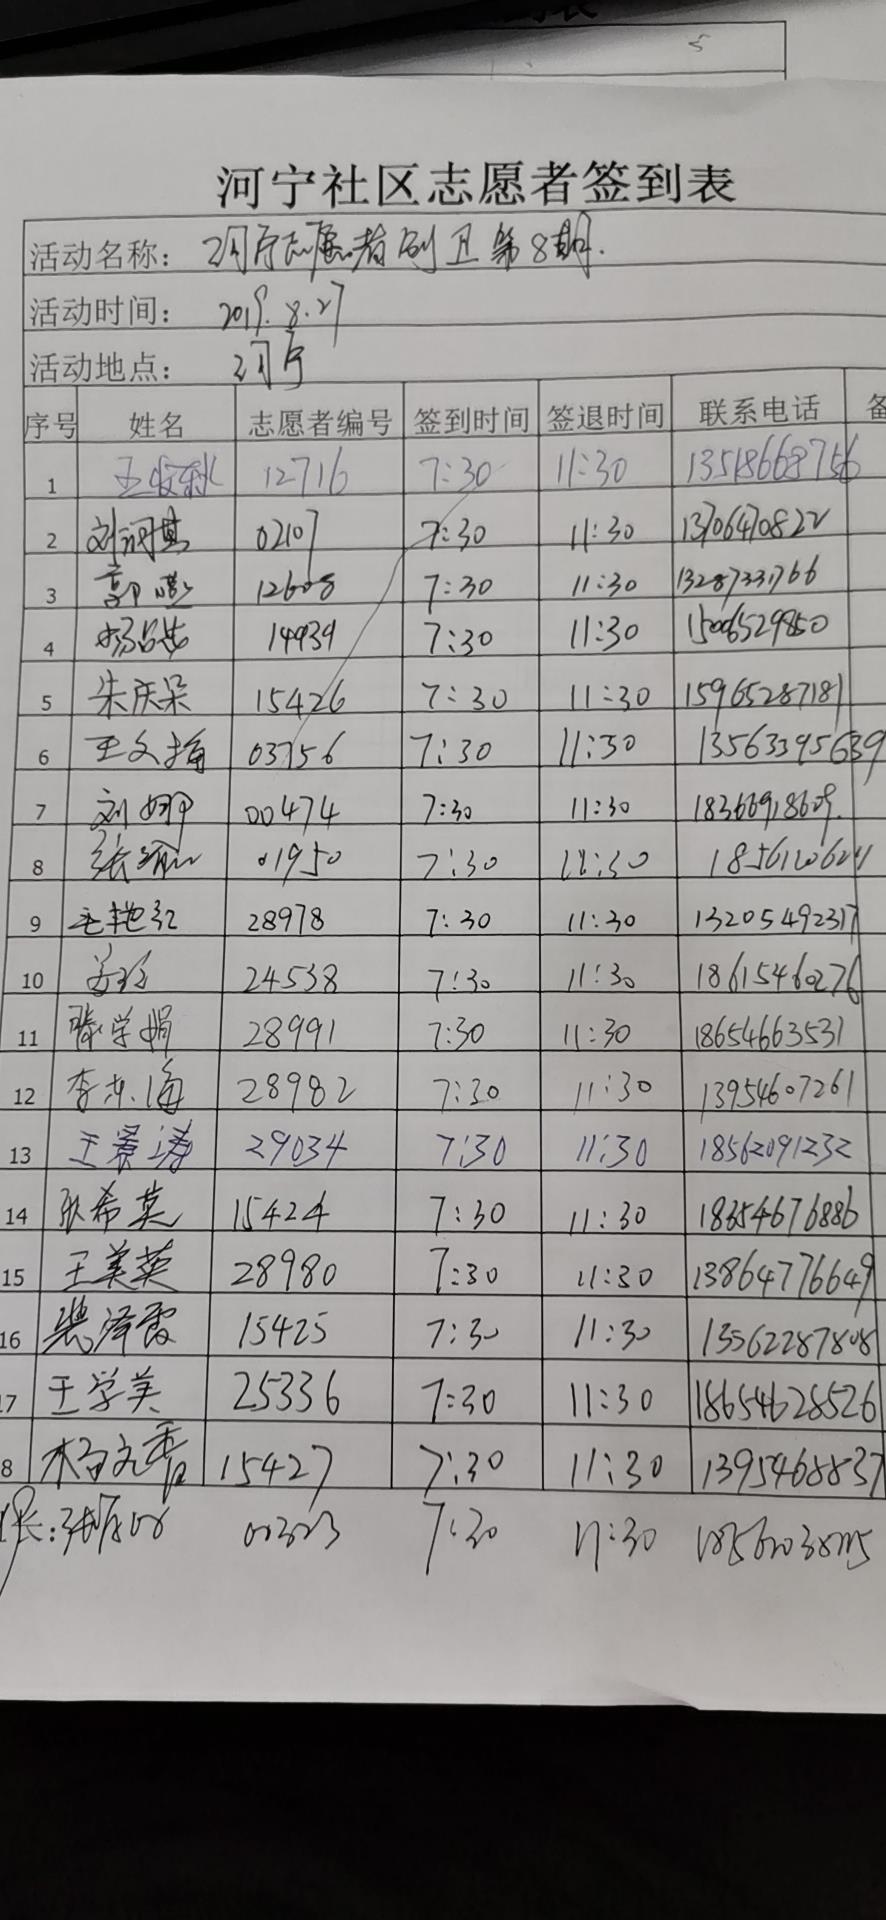 河宁社区志愿者签到表
活动名称： 河宁志愿者 第8期.
活动时间： 2019.8.27
活动地点： 河宁
序号 姓名 志愿者编号 签到时间 签退时间 联系电话 备
1 12716 7:30 11:30 13518668756
2 刘洞其 02107 7:30 11:30 13706470822
3 12608 7:30 11:30 13287331766
4 14939 7:30 11:30 15006529850
5 朱庆朵 15426 7:30 11:30 15965287181
6 王文梅 03756 7:30 11:30 13563395639
7 刘婷 00474 7:30 11:30 18366918609.
8 01950 7:30 11:30 18561206211
9 毛艳红 28978 7:30 11:30 13205492317
10 姜玲 24538 7:30 11:30 18615460276
11 滕学娟 28991 7:30 11:30 18654663531
12 李东海 28982 7:30 11:30 13954607261
13 王景涛 29034 7:30 11:30 18562091232
14 耿希英 15424 7:30 11:30 18354676886
15 王美英 28980 7:30 11:30 13864776649
16 裴泽霞 15425 7:30 11:30 13562287808
17 王学美 25336 7:30 11:30 18654628526
8 15427 7:30 11:30 1395468837
长: 00323 7:30 11:30